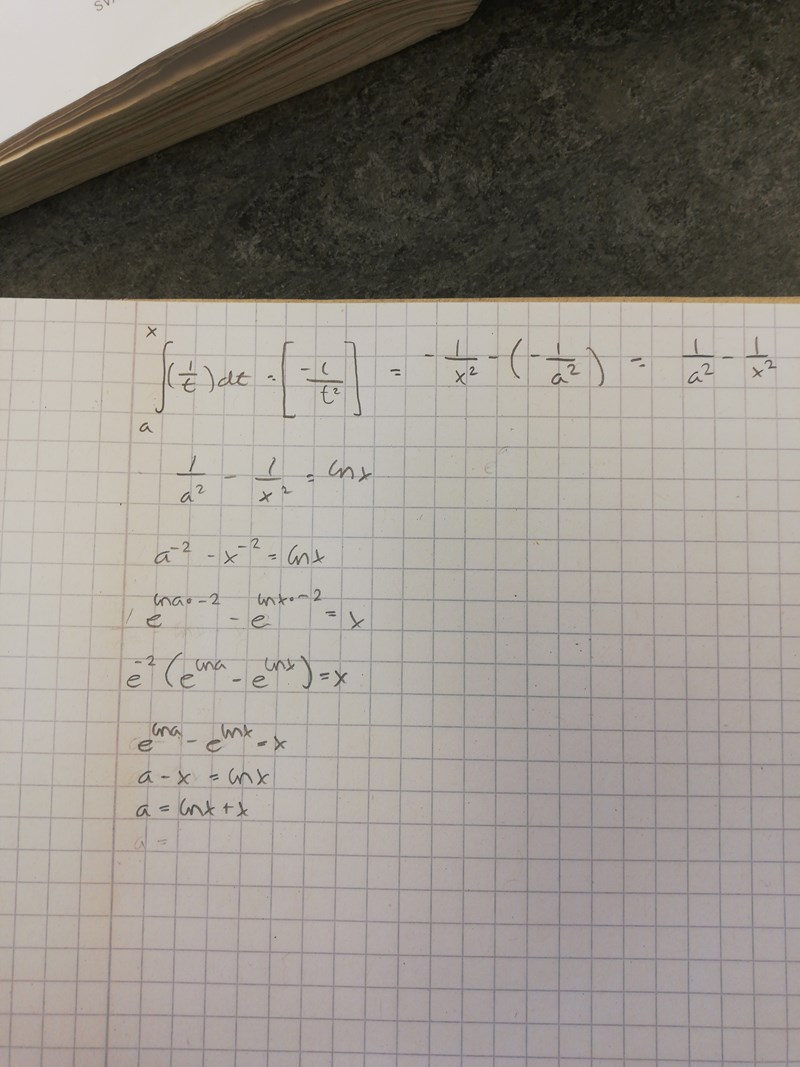 x
∫(1/t)dt = [-1/t²] = -1/x² - (-1/a²) = 1/a² - 1/x²
a
1/a² - 1/x² = lnx
a⁻² - x⁻² = lnx
e^(lna·-2) - e^(lnx·-2) = x
e⁻²(e^(lna) - e^(lnx)) = x
e^(lna) - e^(lnx) = x
a - x = lnx
a = lnx + x
a =